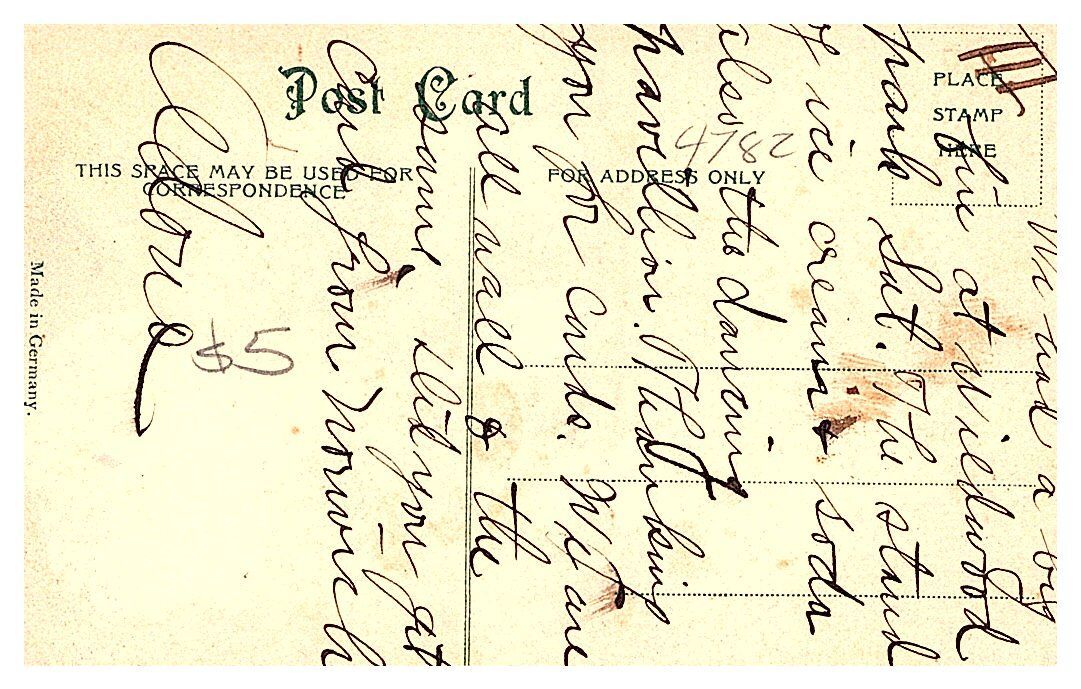 Post Card
THIS SPACE MAY BE USED FOR
CORRESPONDENCE
FOR ADDRESS ONLY
PLACE
STAMP
HERE
Made in Germany.
4782
$5
We had a big
fire at Wildwood
park Sat. The stand
of ice cream & soda
also the dancing
pavollion. Thanking
you for cards. We are
all well & the
same, Did you get
Card from Norwich